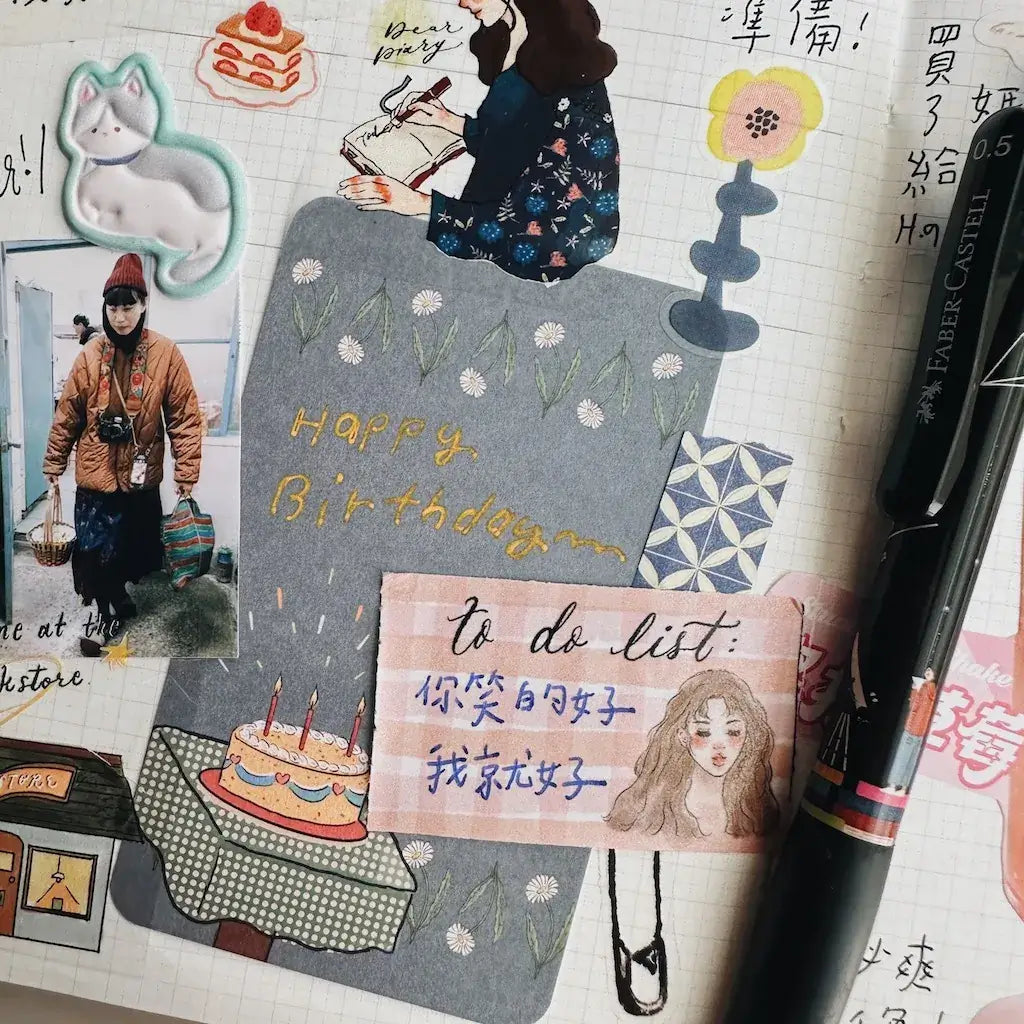 Dear
Diary
準備!
買
了
給
媽
0.5
FABER-CASTELL
Happy
Birthday
to do list:
你笑的好
我就好
me at the
kstore.
STORE
莓
爽